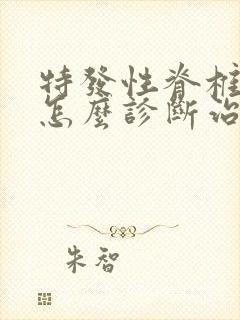 特發性脊柱
怎麼診斷治
朱智